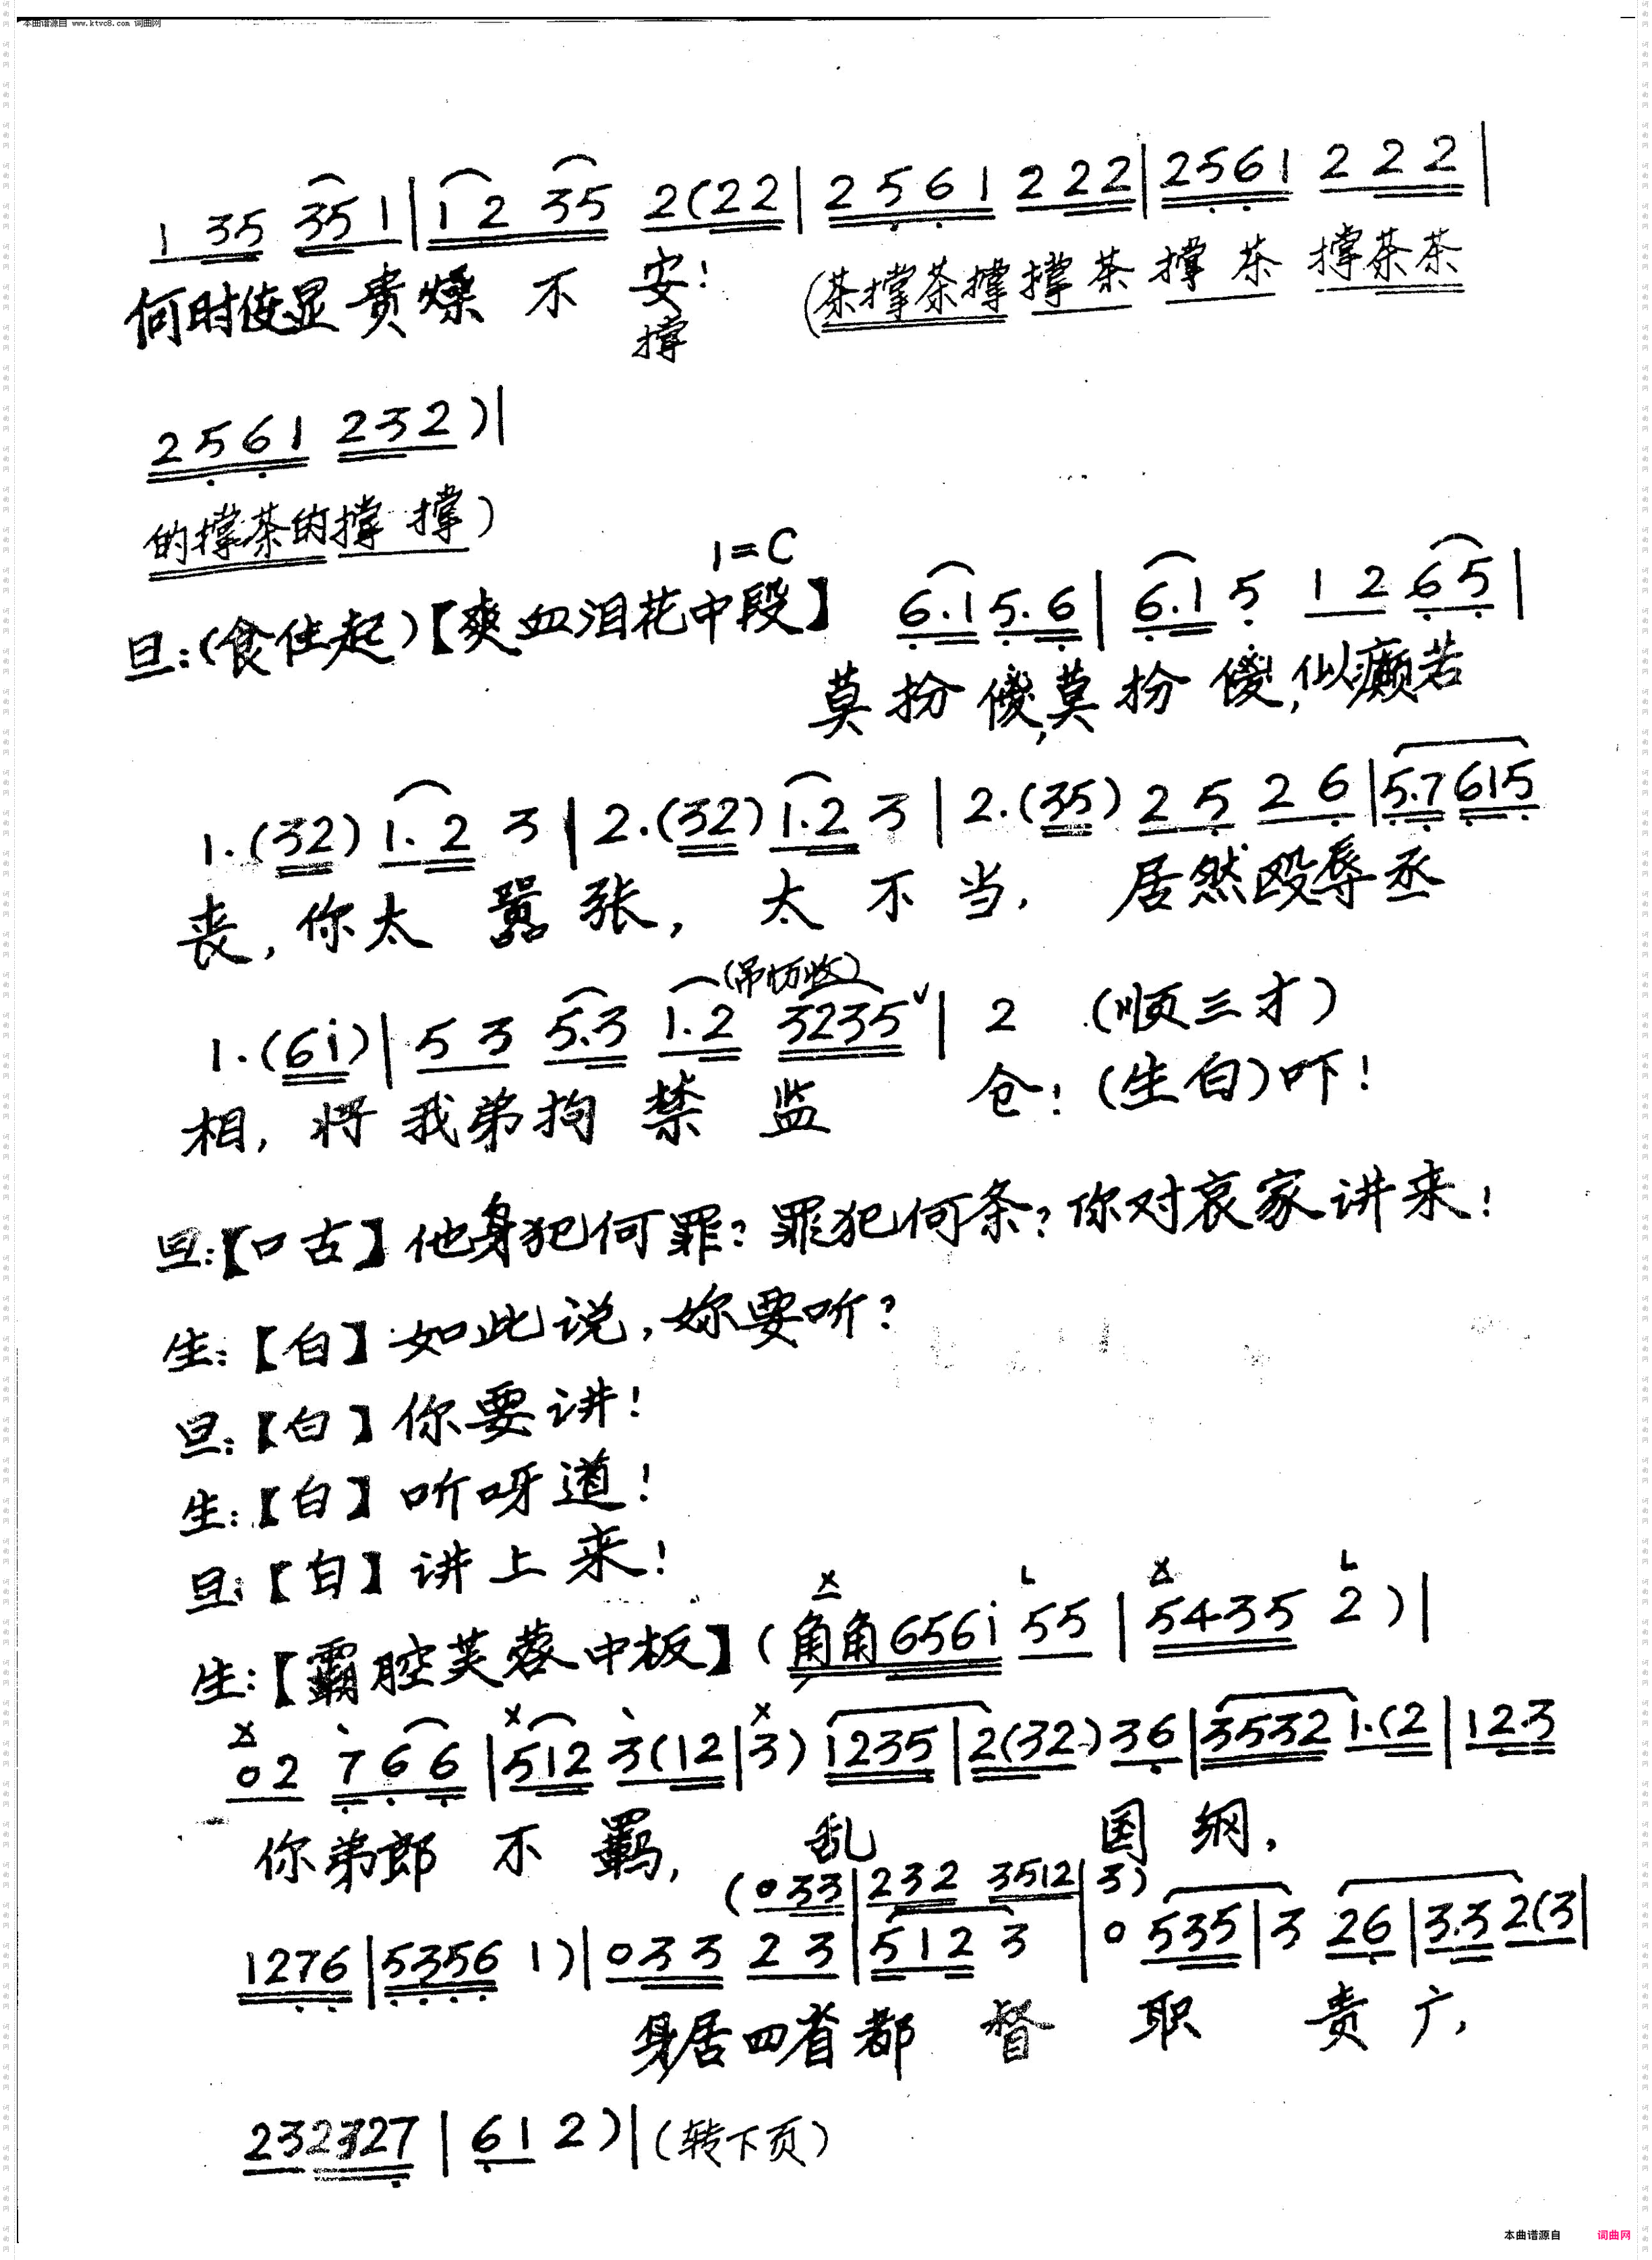 本曲谱源自 www.ktvc8.com 词曲网
1 35 351|12 35 2(22|2561 222|2561 222|
何时使显贵燥不安! (茶撑茶撑撑茶撑茶撑茶茶
撑
2561 232)|
的撑茶的撑撑)
1=C
旦:(食住起)【爽血泪花中段】 6.1 5.6|6.1 5 12 65|
莫扮傻,莫扮傻,似癫若
1.(32) 1.2 3|2.(32) 1.2 3|2.(35) 25 26|5.7 615
丧,你太嚣张,太不当,居然殴辱丞
(吊切收)
1.(6i)|53 5.3 1.2 3235∨|2 (顺三才)
相,将我弟拘禁监仓!(生白)吓!
旦:【口古】他身犯何罪?罪犯何条?你对哀家讲来!
生:【白】如此说,妳要听?
旦:【白】你要讲!
生:【白】听呀道!
旦:【白】讲上来!
生:【霸腔芙蓉中板】(角角656i 55|5435 2)|
02 766|512 3(12|3) 1235|2(32) 36|3532 1.(2|12.3
你弟郎不羁,乱国纲,
(033|232 3512|3)
1276|5356 1)|033 23|512 3|0 535|3 26|3.3 2(3|
身居四省都督职贵广,
232327|61 2)|(转下页)
本曲谱源自 词曲网